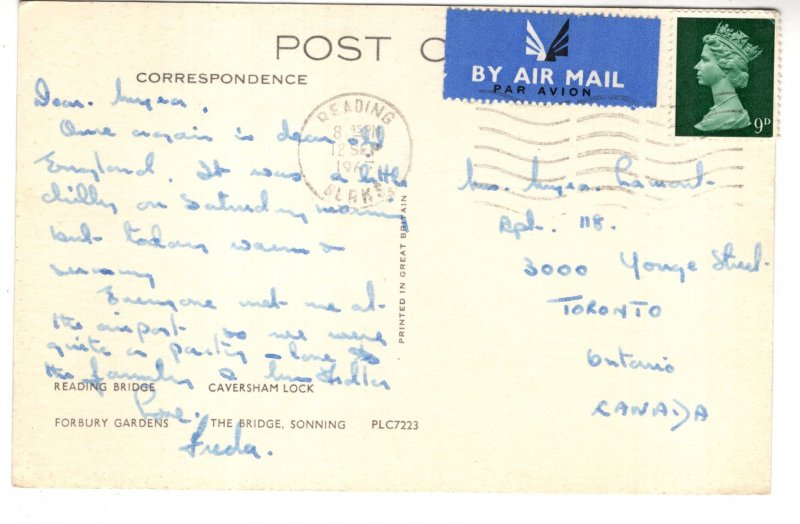 POST C
CORRESPONDENCE
BY AIR MAIL
PAR AVION
9D
READING
8 45 PM
12 SEP
196
BERKS
Dear Myra.
Once again in dear old
England. It was a little
chilly on Saturday morning
but today warm &
sunny
Everyone met me at
the airport so we were
quite a party - love to
the family & Mrs
Love.
Freda.
Mrs. Myra Lamont
Apt. 118.
3000 Yonge Street.
TORONTO
Ontario
CANADA
PRINTED IN GREAT BRITAIN
READING BRIDGE CAVERSHAM LOCK
FORBURY GARDENS THE BRIDGE, SONNING PLC7223